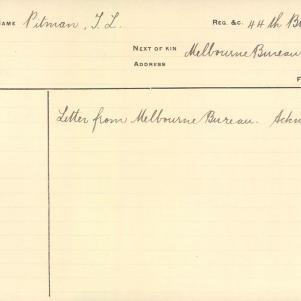 NAME Pitman, T. L. REG. &C. 44th B
NEXT OF KIN Melbourne Bureau
ADDRESS
F
Letter from Melbourne Bureau. Ackn